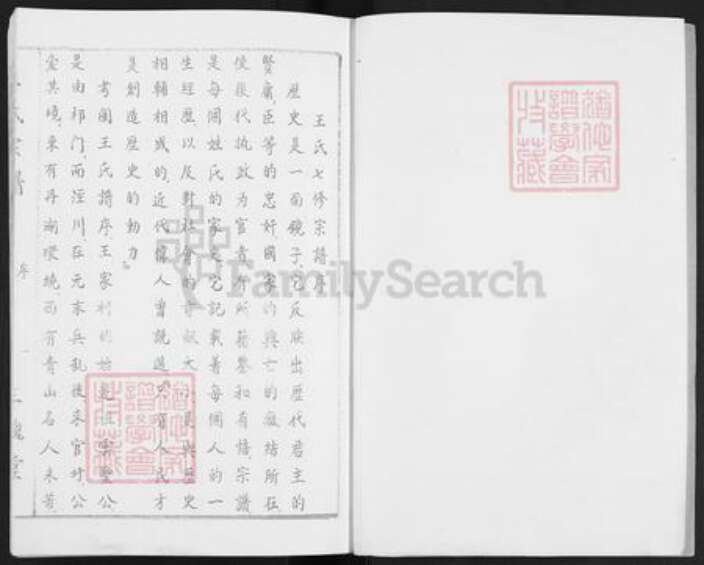 王氏七修宗譜序
歷史是一面鏡子它反映出歷代君主的
賢庸臣等的忠奸國家的興亡的癥結所在
使後代執政為官者有所藉鑒和有悟宗譜
是每個姓氏的家史它記載著每個人的一
生經歷以及對社會的貢獻大小是與歷史
相輔相成的近代偉人曾說過只有人民才
是創造歷史的動力
考閱王氏譜序王家村的始遷祖雲聖公
是由祁門而涇川在元末兵亂後來官圩公
愛其境東有丹湖環繞西有青山名人未
氏宗譜
序
一
三槐堂
FamilySearch